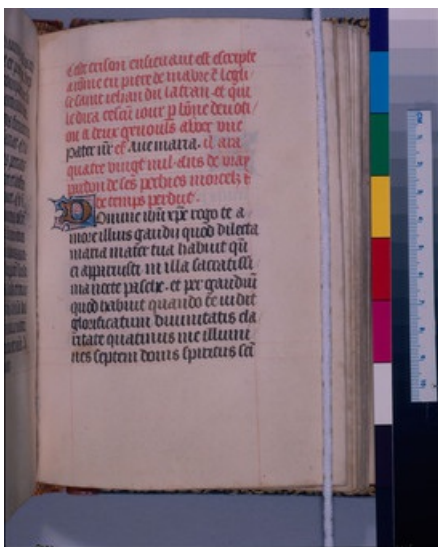 Ceste orison ensieuant est escripte
a rome en piere de mabre e legli
se saint iehan du latran et qui
le dira cescu iour p bone deuoti
on a deux genouls avec une
pater nr et aue maria. il ara
quatre vingt mil ans de vray
pardon de ses pechies mortelz &
de temps perdut.
Domine ihu xpe rogo te a
more illius gaudii quod dilecta
maria mater tua habuit qn
ei apparuisti in illa sacratissi
ma nocte pasche. et per gaudiu
quod habuit quando te uidit
glorificatum diuinitatis cla
ritate quatinus me illumi
nes septem donis spiritus sci